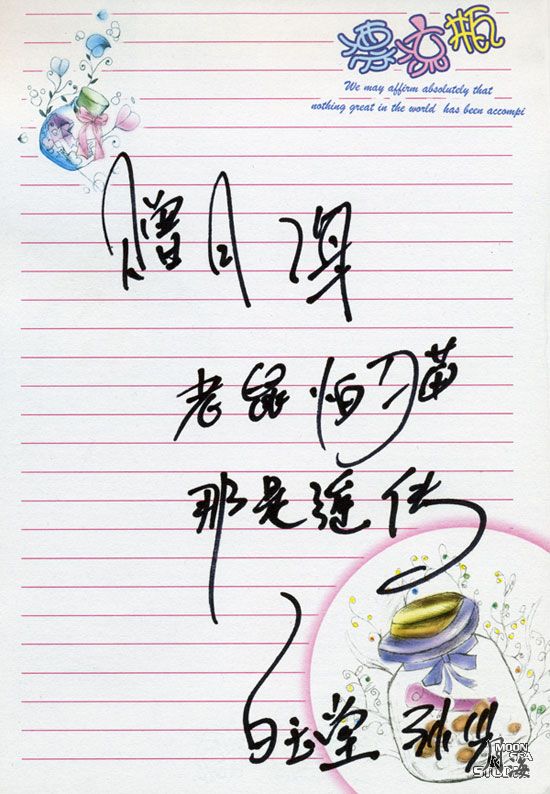 漂流瓶
We may affirm absolutely that
nothing great in the world has been accompi
赠月海
老鼠怕猫
那是谣传
白玉堂 孙兴
月海
MOON
SEA